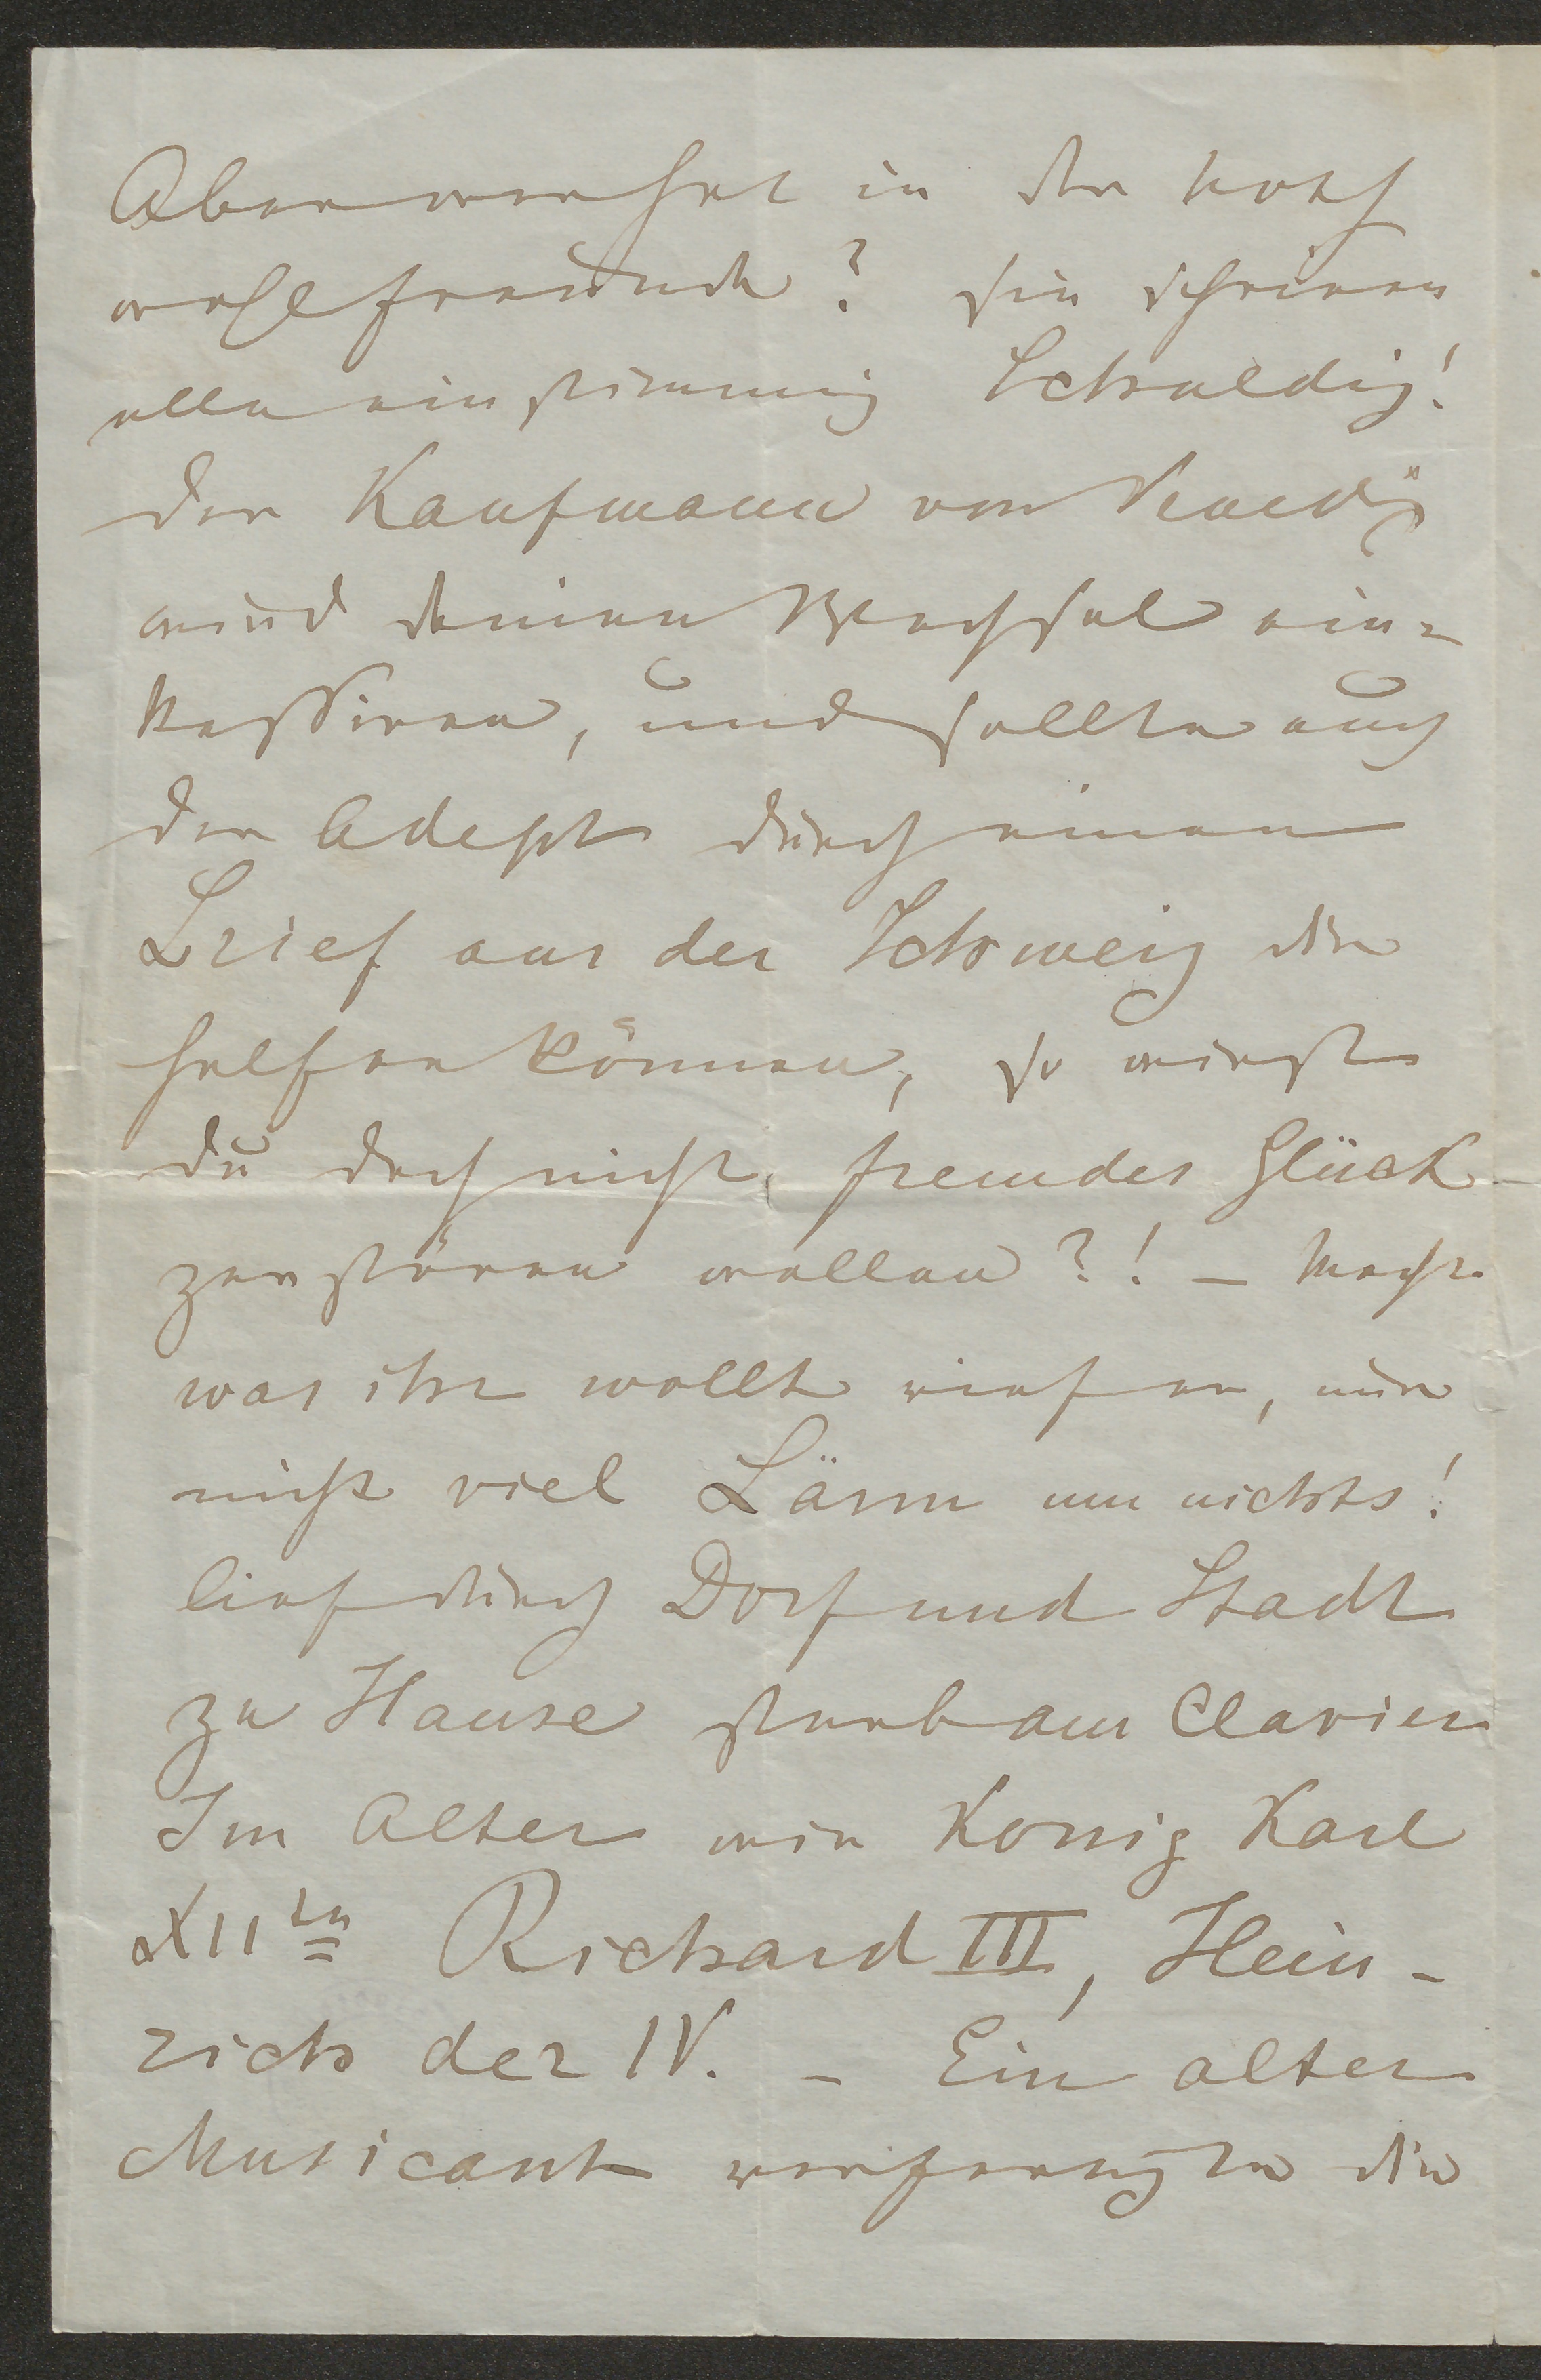 Aber wer hat in der Noth
wohl Freunde? Sie schrieen
alle einstimmig Schuldig!
der Kaufmann von Vened'g
wird deinen Wechsel ein-
kassiren, und sollte auch
der Adept durch einen
Brief aus der Schweiz dir
helfen können, so wirst
du doch nicht fremdes Glück
zerstören wollen?! – Macht
was ihr wollt rief er, nur
nicht viel Lärm um nichts!
lief durch Dorf und Stadt
zu Hause starb am Clavier
Im Alter wie König Karl
XII te Richard III, Hein-
rich der IV. – Ein alter
Musicant verfertigte die